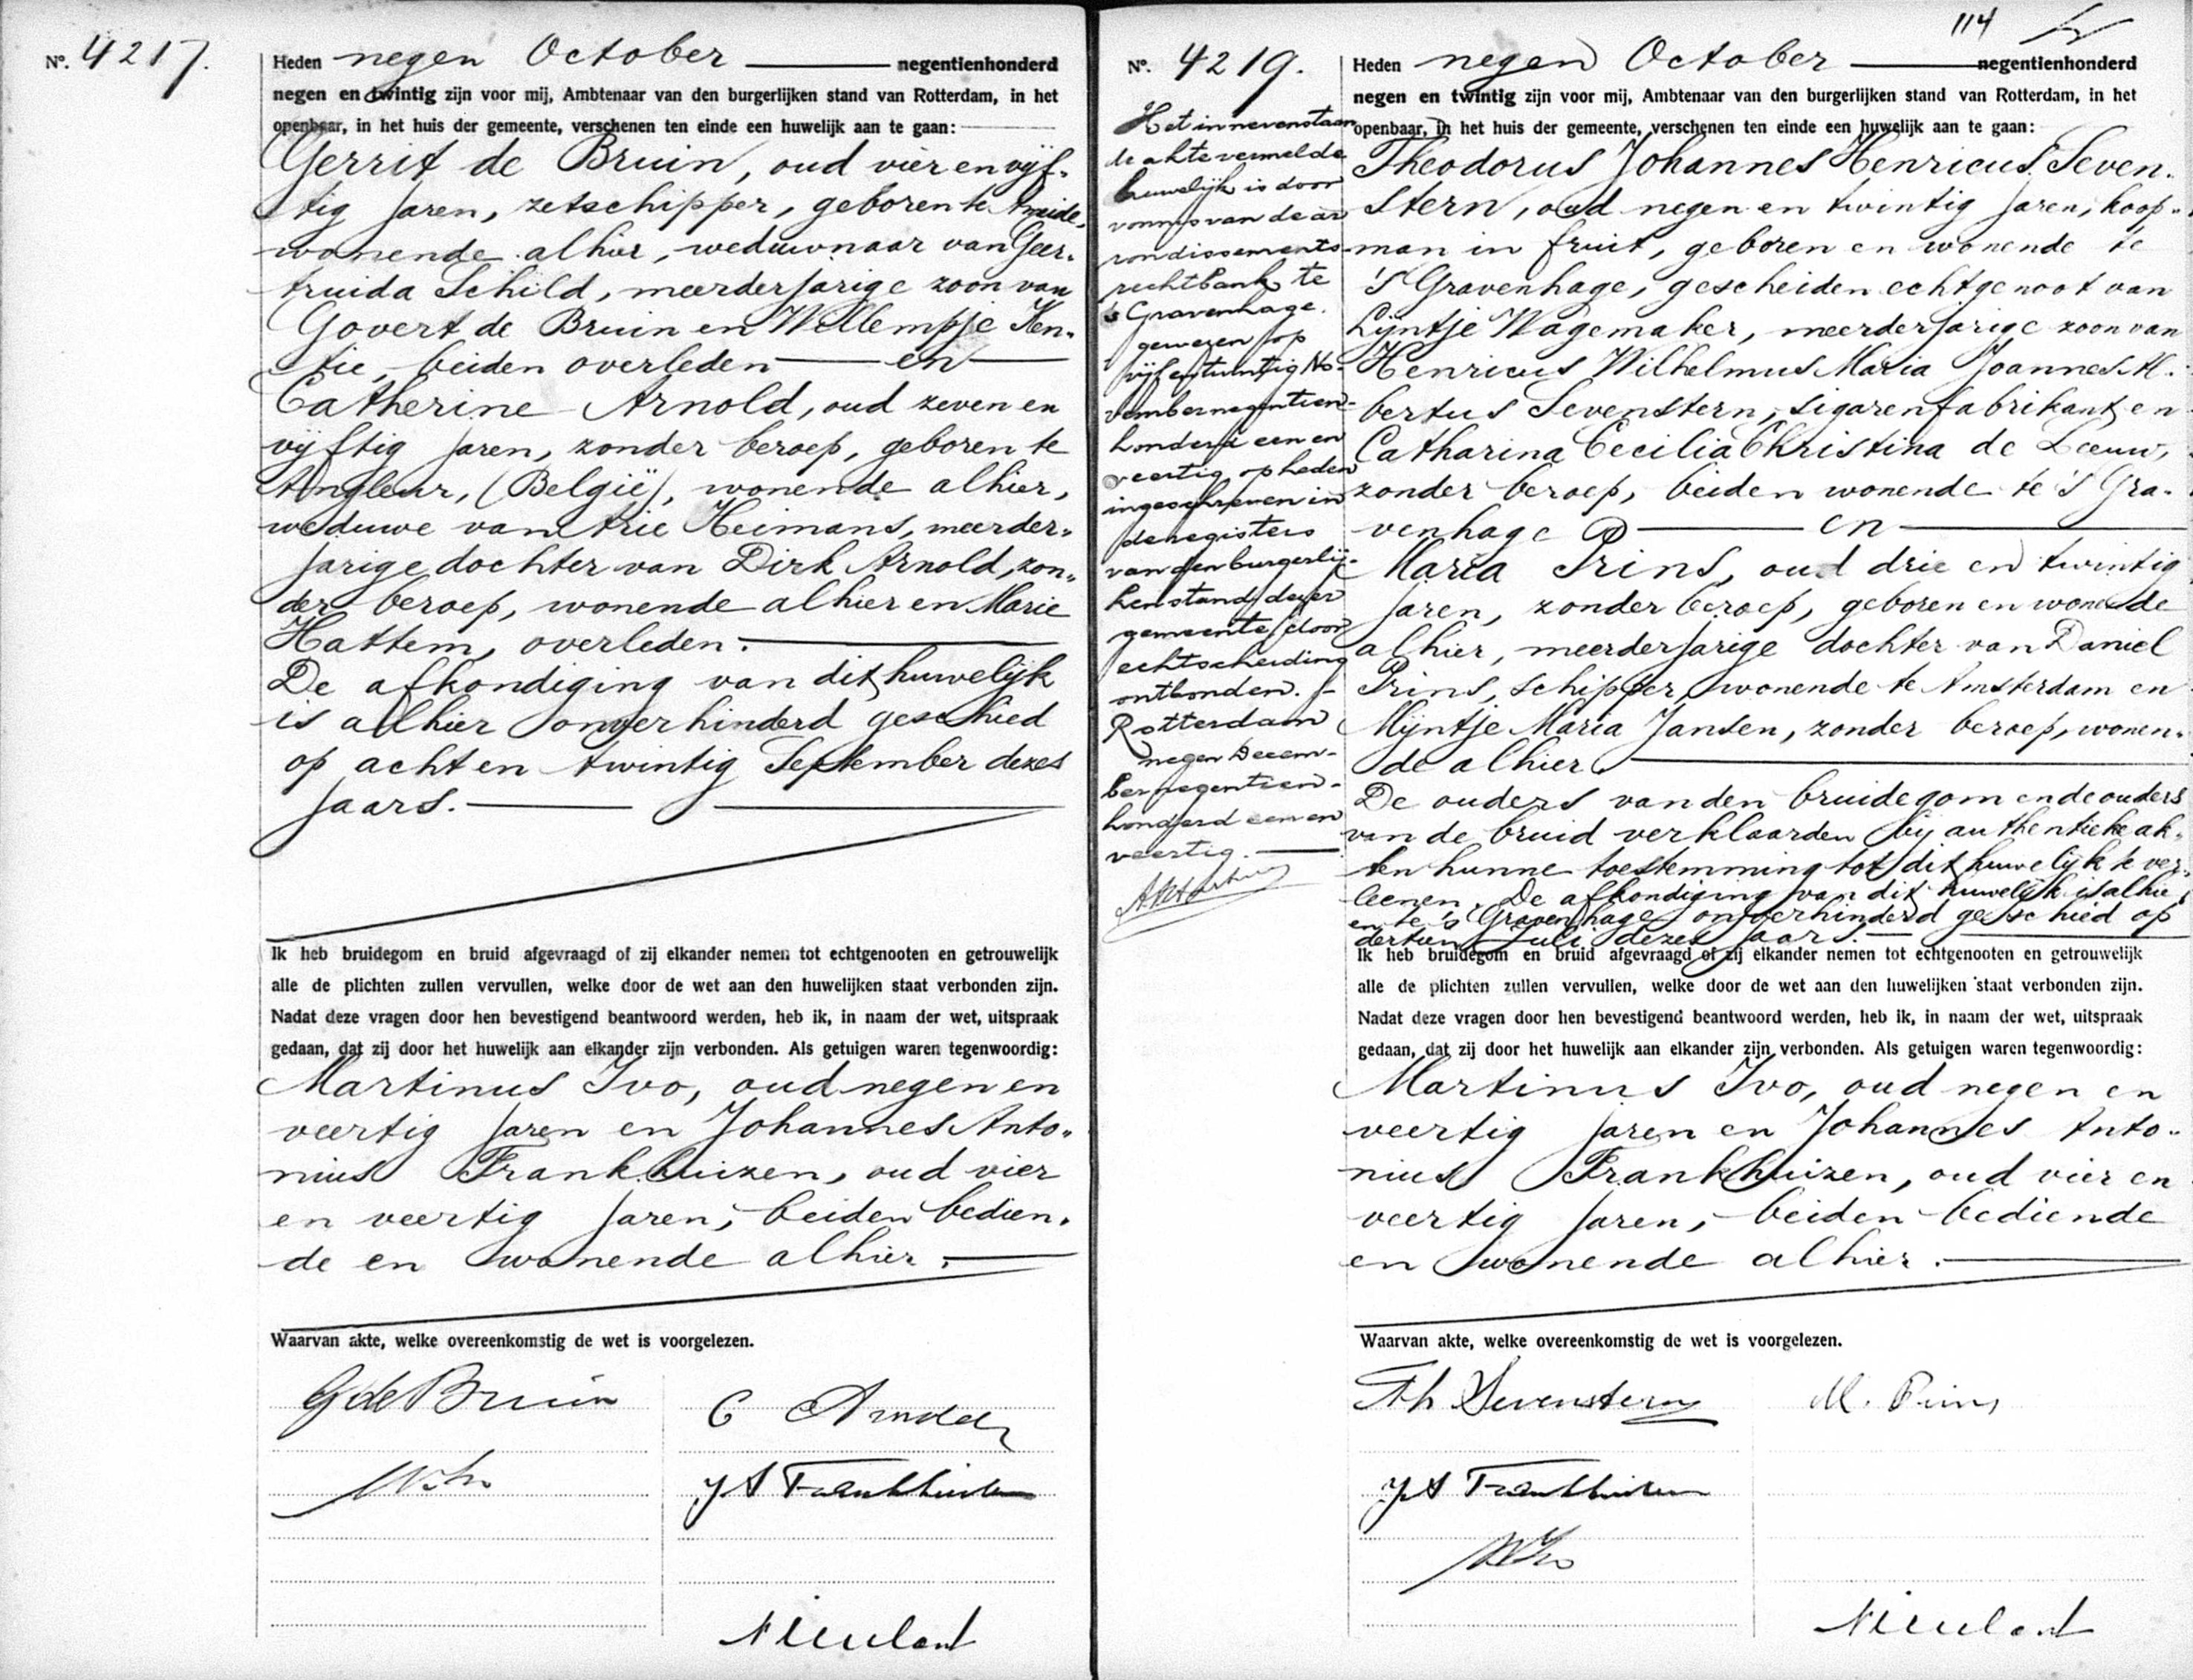 No. 4217.
Heden negen October negentienhonderd
negen en twintig zijn voor mij, Ambtenaar van den burgerlijken stand van Rotterdam, in het
openbaar, in het huis der gemeente, verschenen ten einde een huwelijk aan te gaan:
Gerrit de Bruin, oud vier en vijf-
tig jaren, zetschipper, geboren te Ameide,
wonende alhier, weduwnaar van Geer-
truida Schild, meerderjarige zoon van
Govert de Bruin en Willempje Ken-
tie, beiden overleden en
Catherine Arnold, oud zeven en
vijftig jaren, zonder beroep, geboren te
Angleur, (België), wonende alhier,
weduwe van Arie Heimans, meerder-
jarige dochter van Dirk Arnold, zon-
der beroep, wonende alhier en Marie
Hattem, overleden.
De afkondiging van dit huwelijk
is alhier onverhinderd geschied
op acht en twintig September dezes
jaars.
Ik heb bruidegom en bruid afgevraagd of zij elkander nemen tot echtgenooten en getrouwelijk
alle de plichten zullen vervullen, welke door de wet aan den huwelijken staat verbonden zijn.
Nadat deze vragen door hen bevestigend beantwoord werden, heb ik, in naam der wet, uitspraak
gedaan, dat zij door het huwelijk aan elkander zijn verbonden. Als getuigen waren tegenwoordig:
Martinus Ivo, oud negen en
veertig jaren en Johannes Anto-
nius Frankhuizen, oud vier
en veertig jaren, beiden bedien-
de en wonende alhier.
Waarvan akte, welke overeenkomstig de wet is voorgelezen.
G de Bruin
C Arnold
M Ivo
J A Frankhuizen
114
No. 4219.
Het in nevenstaan
de akte vermelde
huwelijk is door
vonnis van de ar
rondissements-
rechtbank te
's Gravenhage
gewezen op
vijf en twintig No-
vember negentien-
honderd een en
veertig, op heden
ingeschreven in
de registers
van den burgerlij-
ken stand dezer
gemeente door
echtscheiding
ontbonden.
Rotterdam
negen Decem-
ber negentien-
honderd een en
veertig.
Heden negen October negentienhonderd
negen en twintig zijn voor mij, Ambtenaar van den burgerlijken stand van Rotterdam, in het
openbaar, in het huis der gemeente, verschenen ten einde een huwelijk aan te gaan:
Theodorus Johannes Henricus Seven-
stern, oud negen en twintig jaren, koop-
man in fruit, geboren en wonende te
's Gravenhage, gescheiden echtgenoot van
Lijntje Wagemaker, meerderjarige zoon van
Henricus Wilhelmus Maria Joannes Al-
bertus Sevenstern, sigarenfabrikant en
Catharina Cecilia Christina de Leeuw,
zonder beroep, beiden wonende te 's Gra-
venhage en
Maria Prins, oud drie en twintig
jaren, zonder beroep, geboren en wonende
alhier, meerderjarige dochter van Daniel
Prins, schipper, wonende te Amsterdam en
Mijntje Maria Jansen, zonder beroep, wonen-
de alhier.
De ouders van den bruidegom en de ouders
van de bruid verklaarden bij authentieke ak-
ten hunne toestemming tot dit huwelijk te ver-
leenen. De afkondiging van dit huwelijk is alhier
en te 's Gravenhage onverhinderd geschied op
dertien Juli dezes jaars.
Ik heb bruidegom en bruid afgevraagd of zij elkander nemen tot echtgenooten en getrouwelijk
alle de plichten zullen vervullen, welke door de wet aan den huwelijken staat verbonden zijn.
Nadat deze vragen door hen bevestigend beantwoord werden, heb ik, in naam der wet, uitspraak
gedaan, dat zij door het huwelijk aan elkander zijn verbonden. Als getuigen waren tegenwoordig:
Martinus Ivo, oud negen en
veertig jaren en Johannes Anto-
nius Frankhuizen, oud vier en
veertig jaren, beiden bediende
en wonende alhier.
Waarvan akte, welke overeenkomstig de wet is voorgelezen.
Th Sevenstern
M. Prins
J A Frankhuizen
M Ivo